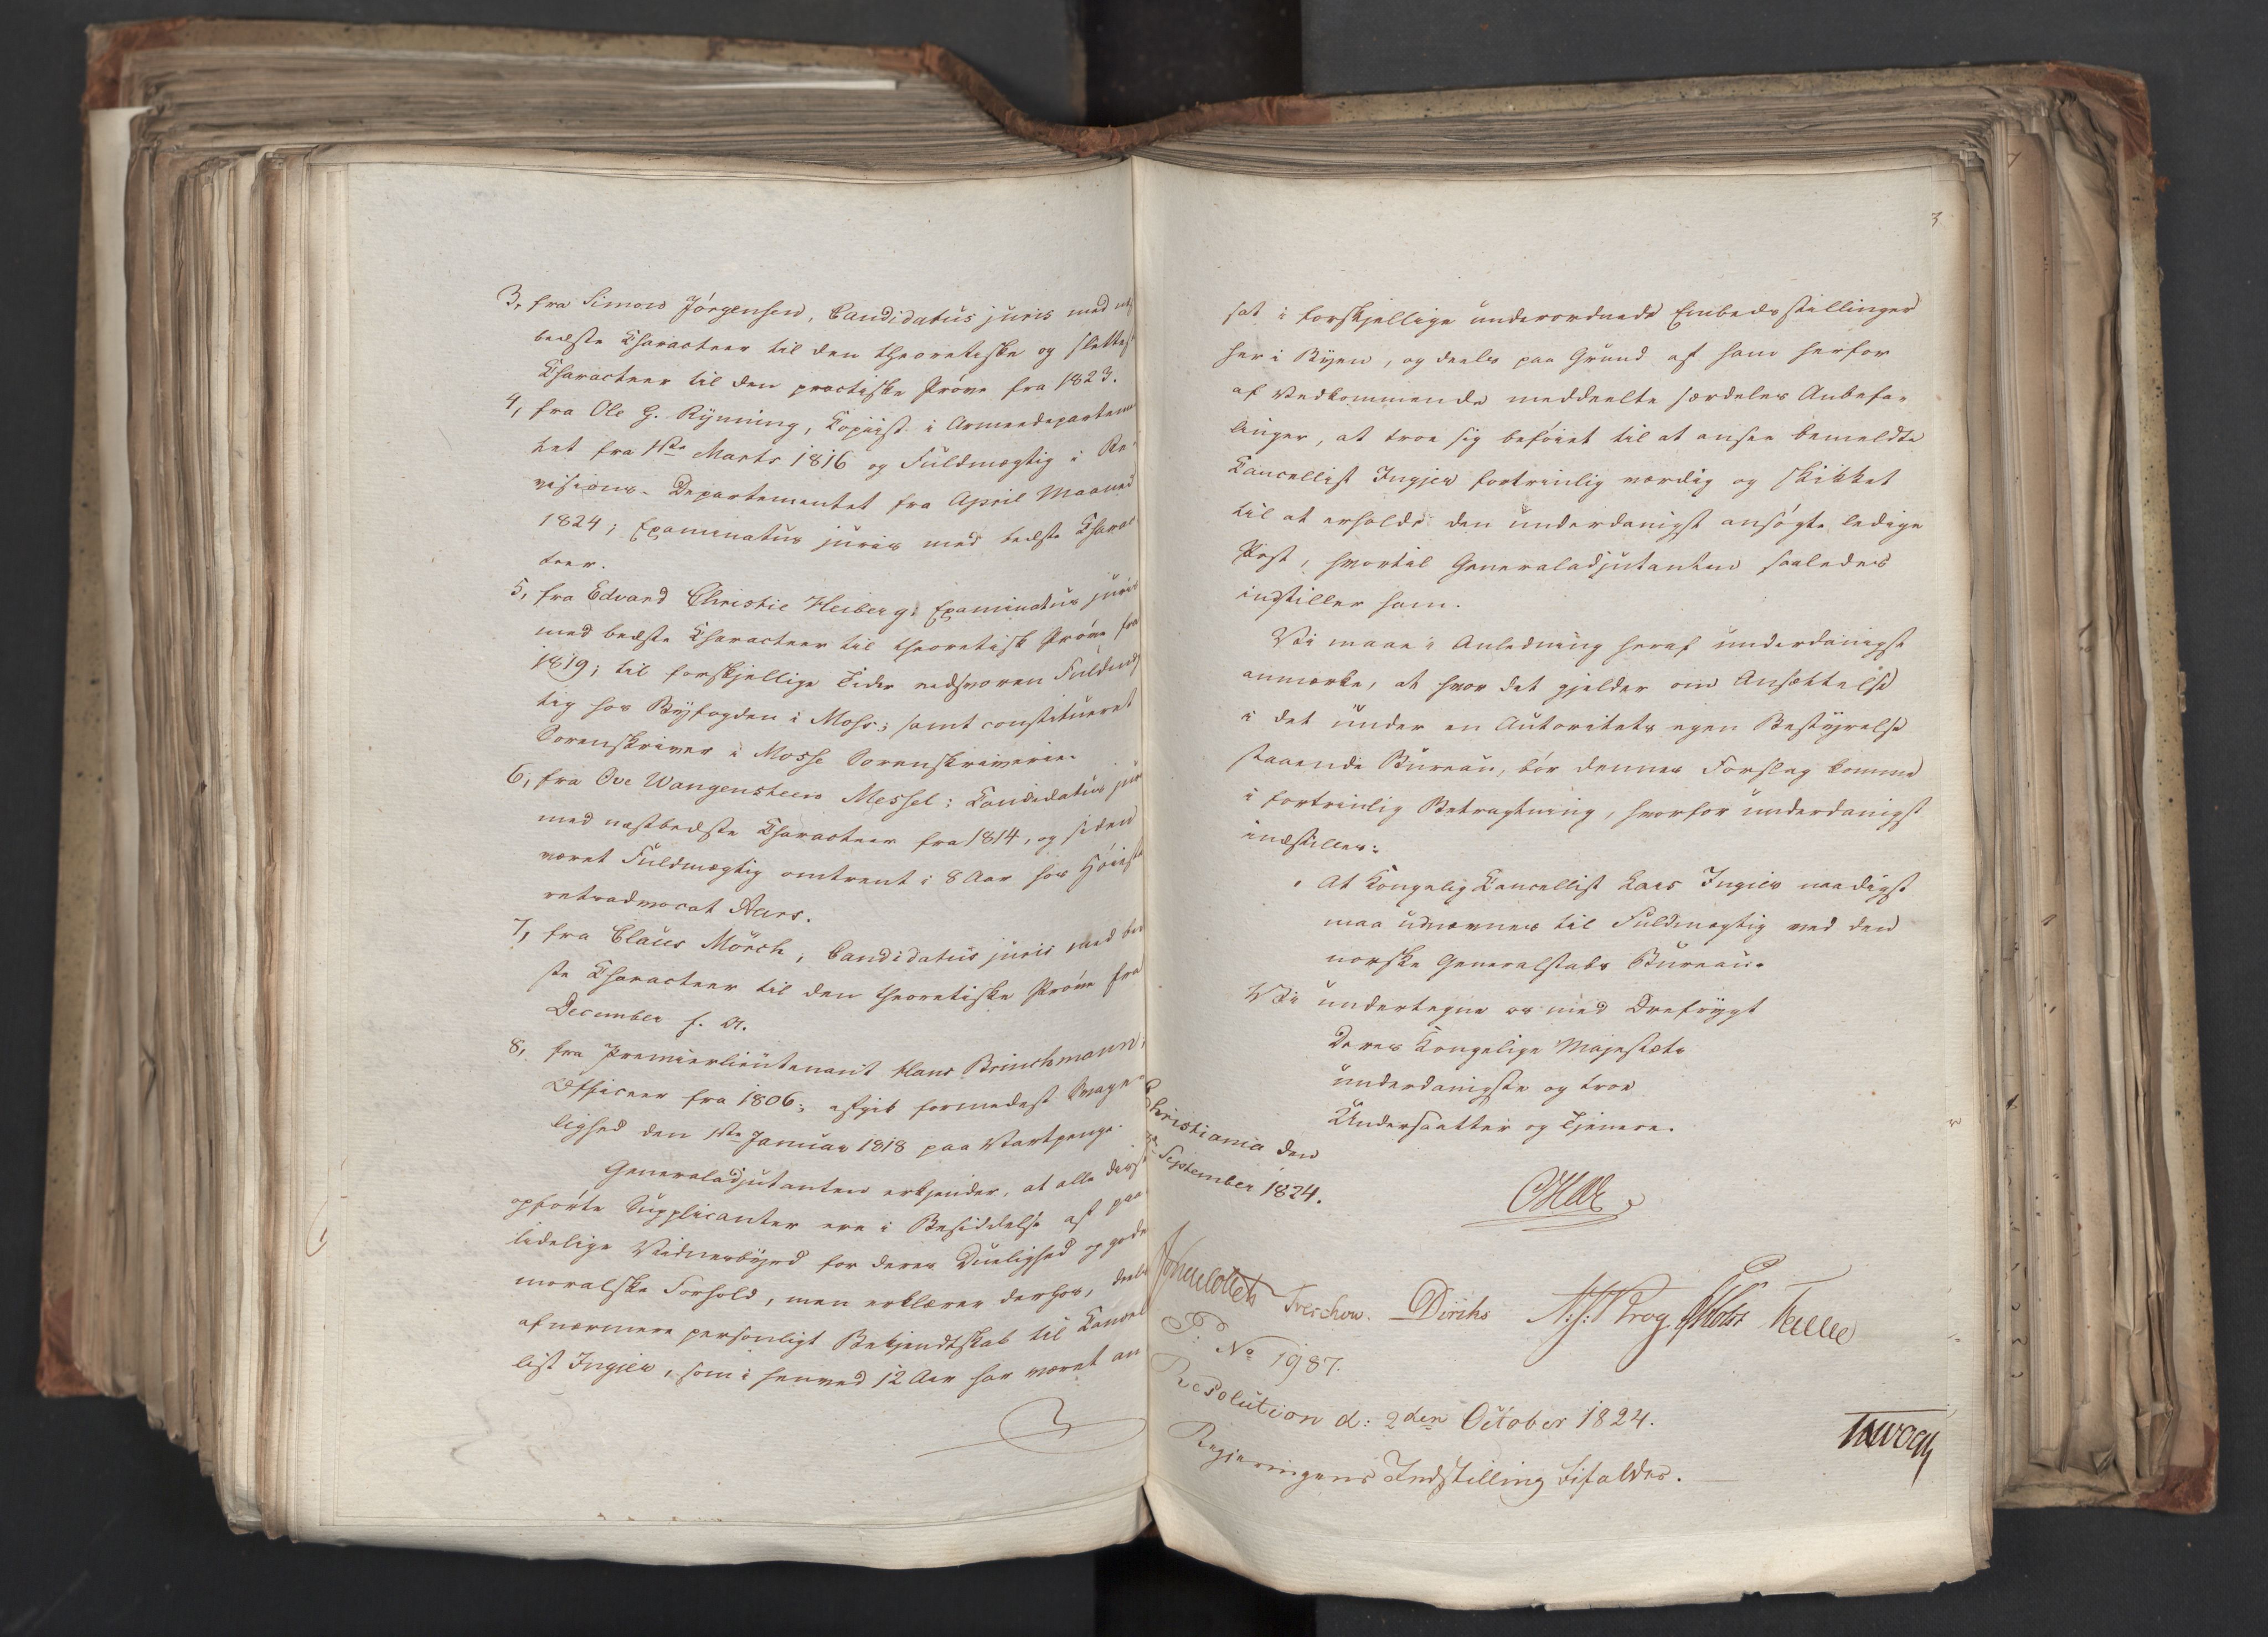 3, fra Simon Jörgensen, Candidatus juris med
bedste Characteer til den theoretiske og slettest
Characteer til den practiske Prøve fra 1823.
4, fra Ole G. Rynning, Copiist i Armeedepartemen
tet fra 1ste Marts 1816 og Fuldmægtig i Re-
visions-Departementet fra April Maaned
1824; Examinatus juris med bedste Charac
teer.
5, fra Edvard Christie Heiberg; Examinatus juris
med bedste Characteer til theoretisk Prøve fra
1819; til forskjellige Tider edsvoren Fuldmæg
tig hos Byfogden i Moss; samt constitueret
Sorenskriver i Mosse Sorenskriverie.
6, fra Ove Wangensteen Messel; Candidatus jur
med næstbedste Characteer fra 1814, og siden
været Fuldmægtig omtrent i 8 Aar hos Höieste
retsadvocat Aars.
7, fra Claus Mörch, Candidatus juris med bed
ste Characteer til den theoretiske Prøve fra
December f. A.
8, fra Premierlieutenant Hans Brinchmann,
Officeer fra 1806; afgik formedelst Svage-
lighed den 1ste Januar 1818 paa Vartpenge.
Generaladjutanten erkjender, at alle disse
opførte Supplicanter ere i Besiddelse af paa-
lidelige Vidnesbyrd for deres Duelighed og gode
moralske Forhold, men erklærer derhos, deels
af nærmere personligt Bekjendtskab til Cancel
list Ingier, som i henved 12 Aar har været an
3
sat i forskjellige underordnede Embedsstillinger
her i Byen, og deels paa Grund af ham herfor
af Vedkommende meddeelte særdeles Anbefa-
linger, at troe sig beföiet til at ansee bemeldte
Cancellist Ingier fortrinlig værdig og skikket
til at erholde den underdanigst ansögte ledige
Post, hvortil Generaladjutanten saaledes
indstiller ham.
Vi maae i Anledning heraf underdanigst
anmærke, at hvor det gjelder om Ansættelse
i det under en Autoritets egen Bestyrelse
staaende Bureau, bör dennes Forslag komme
i fortrinlig Betragtning, hvorfor underdanigst
indstilles:
At Kongelig Cancellist Lars Ingier naadigst
maa udnævnes til Fuldmægtig ved den
norske Generalstabs Bureau.
Vi undertegne os med Ærefrygt
Deres Kongelige Majestæts
underdanigste og troe
Undersaatter og Tjenere.
Christiania den
September 1824.
Jonas Collett Treschow. Diriks A: J: Krog Holst Fasting
P. No 1987.
Resolution d: 2den October 1824.
Regjeringens Indstilling bifaldes.